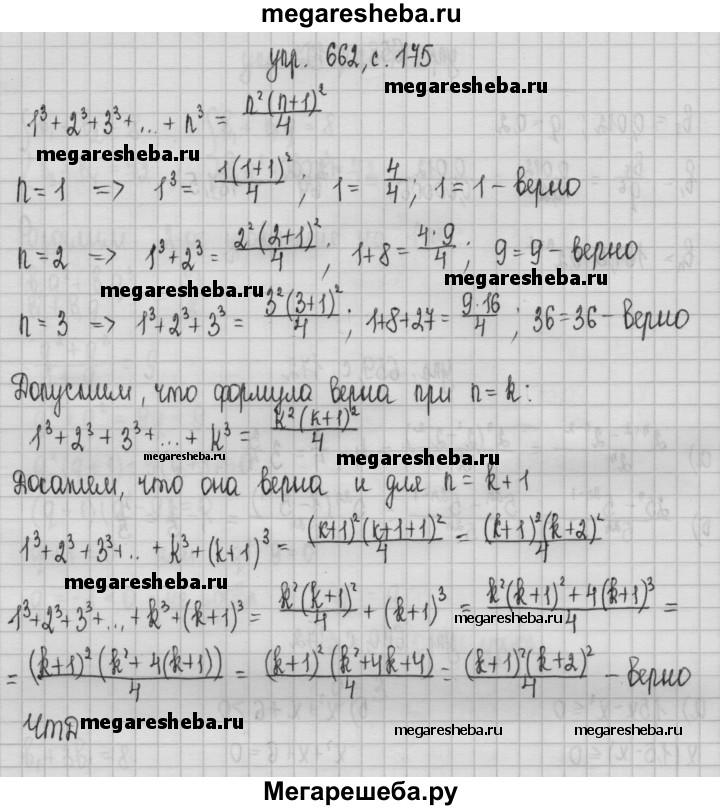 megaresheba.ru
упр. 662, с. 175
megaresheba.ru
1³+2³+3³+...+n³ = n²(n+1)²/4
megaresheba.ru
n=1 => 1³ = 1(1+1)²/4; 1 = 4/4; 1=1 - верно
n=2 => 1³+2³ = 2²(2+1)²/4; 1+8 = 4·9/4; 9=9 - верно
megaresheba.ru megaresheba.ru
n=3 => 1³+2³+3³ = 3²(3+1)²/4; 1+8+27 = 9·16/4; 36=36 - верно
Допустим, что формула верна при n=k:
1³+2³+3³+...+k³ = k²(k+1)²/4
megaresheba.ru megaresheba.ru
Докажем, что она верна и для n=k+1
1³+2³+3³+..+k³+(k+1)³ = (k+1)²(k+1+1)²/4 = (k+1)²(k+2)²/4
megaresheba.ru
1³+2³+3³+...+k³+(k+1)³ = k²(k+1)²/4 + (k+1)³ = k²(k+1)²+4(k+1)³/4 =
megaresheba.ru
= (k+1)²(k²+4(k+1))/4 = (k+1)²(k²+4k+4)/4 = (k+1)²(k+2)²/4 - верно
чтд
megaresheba.ru megaresheba.ru
Мегарешеба.ру